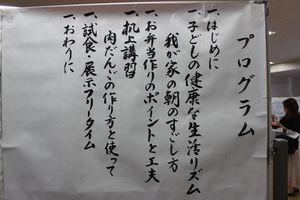 プログラム
一、はじめに
一、子どもの健康な生活リズム
我が家の朝のすごし方
一、お弁当作りのポイントと工夫
一、机上講習
肉だんごの作り方と使って
一、試食・展示フリータイム
一、おわりに